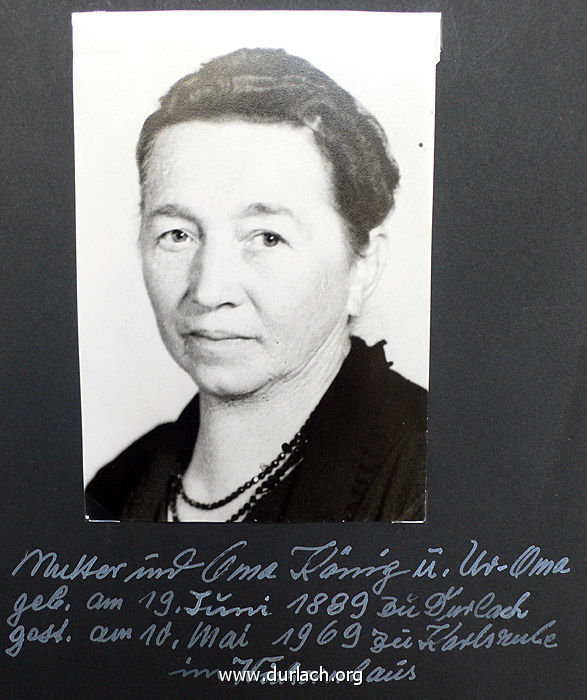 Mutter und Oma König u. Ur-Oma
geb. am 19. Juni 1889 zu Durlach
gest. am 10. Mai 1969 zu Karlsruhe
im
www.durlach.org